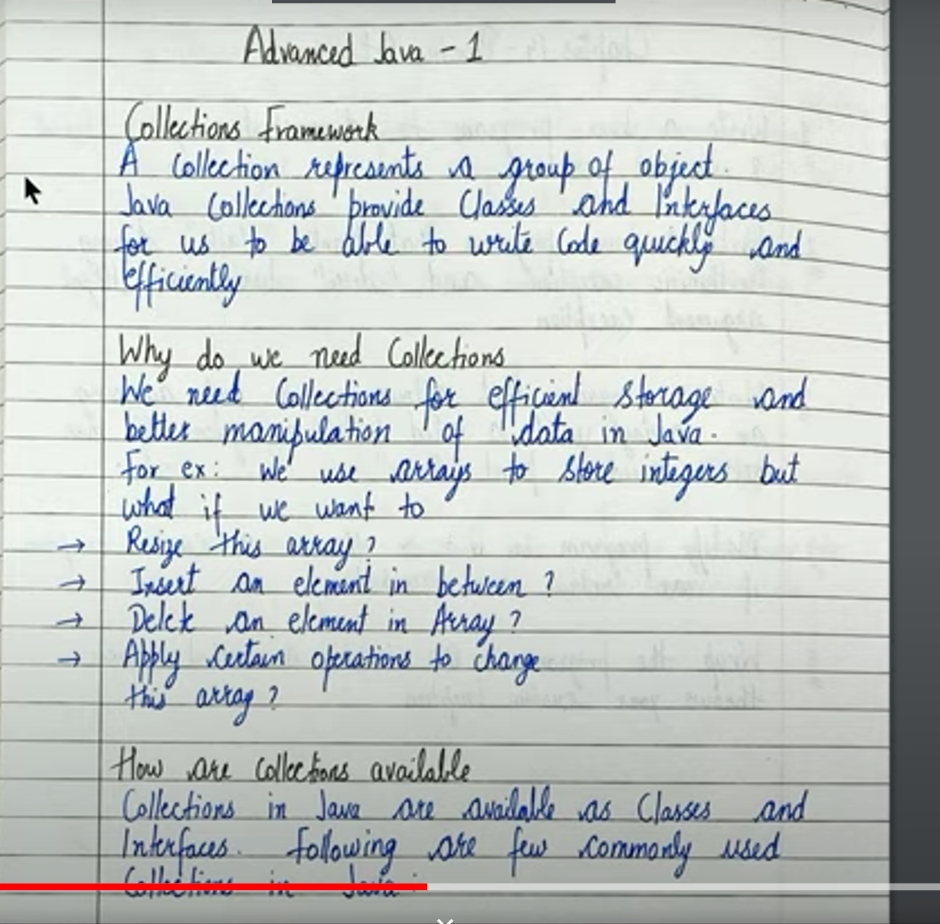 Advanced Java - 1
Collections Framework
A Collection represents a group of object.
Java Collections provide Classes and Interfaces
for us to be able to write Code quickly and
efficiently
Why do we need Collections
We need Collections for efficient storage and
better manipulation of data in Java.
For ex: we use arrays to store integers but
what if we want to
→ Resize this array?
→ Insert an element in between?
→ Delete an element in Array?
→ Apply Certain operations to change
this array?
How are collections available
Collections in Java are available as Classes and
Interfaces. Following are few commonly used
Collections in Java: